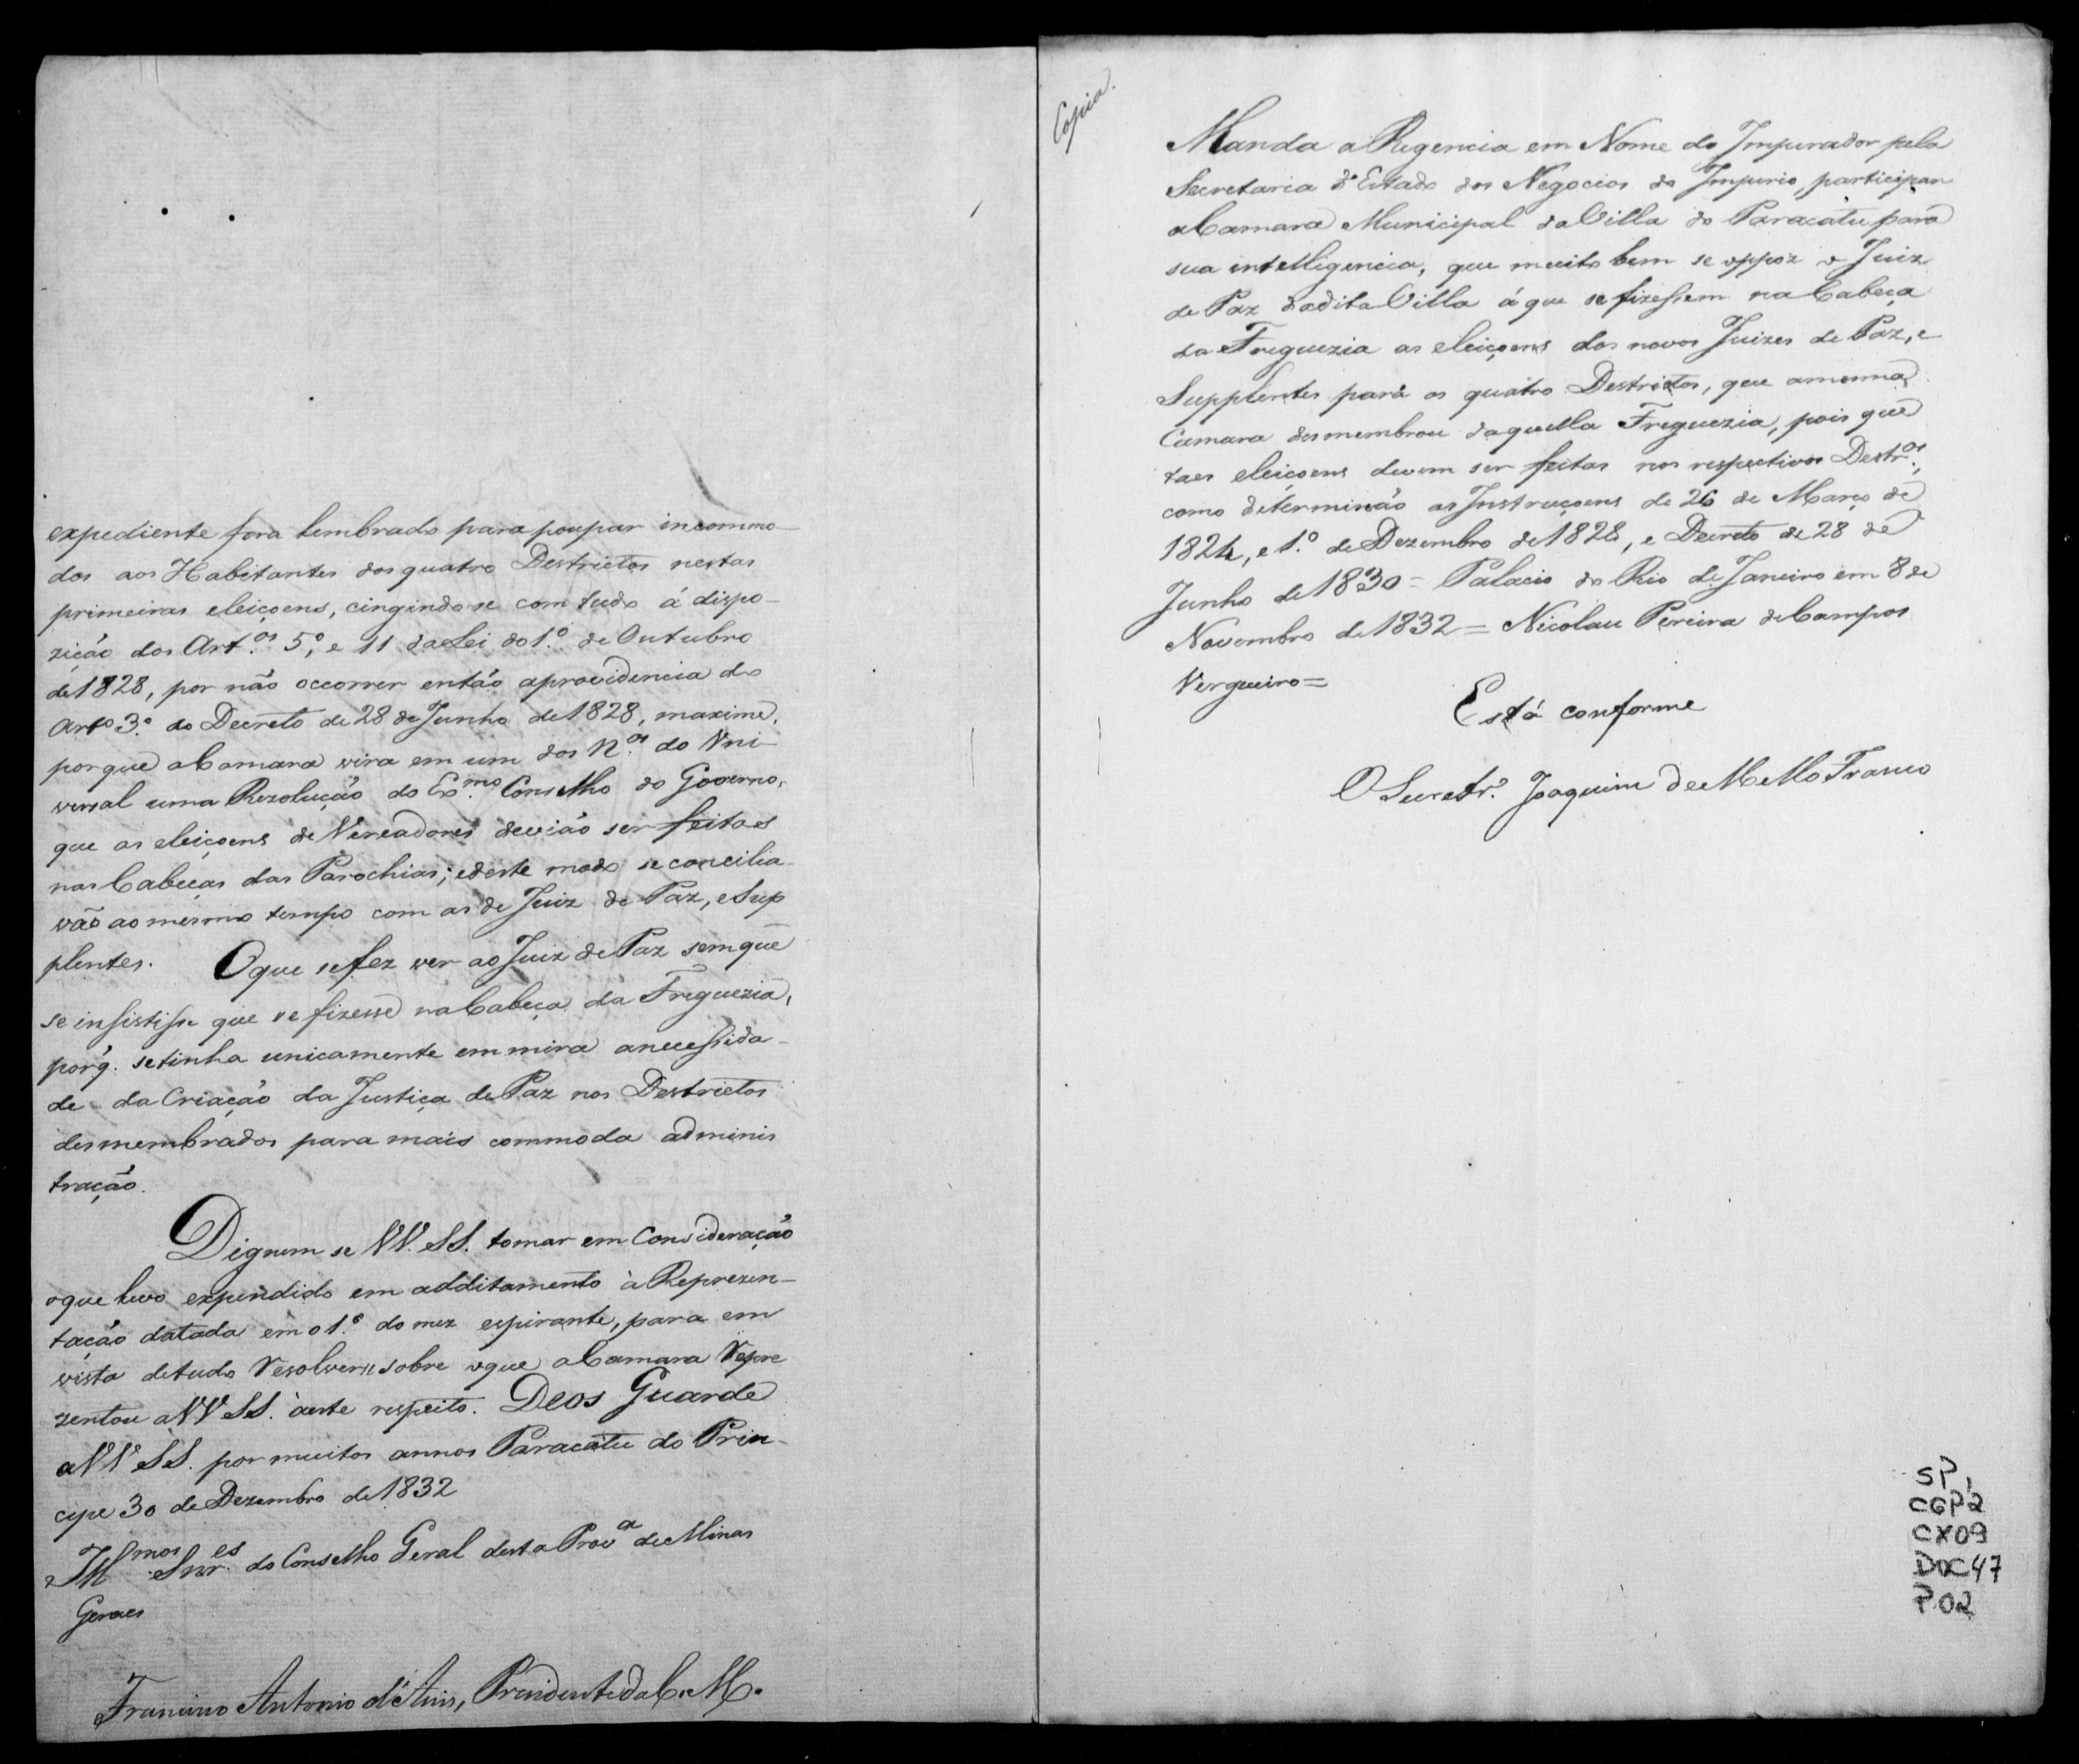 expediente fora lembrado para poupar incommo-
dos aos Habitantes dos quatro Destrictos nestas
primeiras eleiçoens, cingindo-se com tudo á dispo-
zição dos Art.os 5.º, e 11 da Lei do 1.º de Outubro
de 1828, por não occorrer então a providencia do
Artº 3.º do Decreto de 28 de Junho de 1828, maxime,
porque a Camara vira em um dos N.os do Uni-
versal uma Rezolução do Ex.mo Conselho do Governo,
que as eleiçoens de Vereadores devião ser feitas
nas Cabeças das Parochias; e deste modo se concilia-
vão ao mesmo tempo com as de Juiz de Paz, e Sup
plentes. O que se fez ver ao Juiz de Paz sem que
se insistisse que se fizesse na Cabeça da Freguezia,
porq. se tinha unicamente em mira a necessida-
de da Criação da Justiça de Paz nos Destrictos
desmembrados para mais commoda adminis
tração.
Dignem se VV. SS. tomar em Consideração
o que levo expendido em additamento à Reprezen-
tação datada em o 1.º do mez espirante, para em
vista de tudo Resolverem sobre o que a Camara Repre
zentou a VV SS. àeste respeito. Deos Guarde
a VV SS. por muitos annos Paracatu do Prin-
cipe 30 de Dezembro de 1832
Illmos Snr.es do Conselho Geral desta Prova de Minas
Geraes
Antonio d'Assis, Prezidente da C. M.
Copia.
Manda a Regencia em Nome do Imperador pela
Secretaria d'Estado dos Negocios do Imperio, participar
a Camara Municipal da Villa do Paracatu para
sua intelligencia, que muito bem se oppoz o Juiz
de Paz da dita Villa á que se fizessem na Cabeça
da Freguezia as eleiçoens dos novos Juizes de Paz, e
Supplentes para os quatro Destrictos, que a mesma
Camara desmembrou daquella Freguezia, pois que
taes eleiçoens devem ser feitas nos respectivos Destr.os,
como determinão as Instruçoens de 26 de Março de
1824, e 1.º de Dezembro de 1828, e Decreto de 28 de
Junho de 1830 = Palacio do Rio de Janeiro em 8 de
Novembro de 1832 = Nicolau Pereira de Campos
Vergueiro =
Está conforme
O Secretr.º Joaquim de Mello Franco
SP,
CGP2
CX09
DOC47
P.02